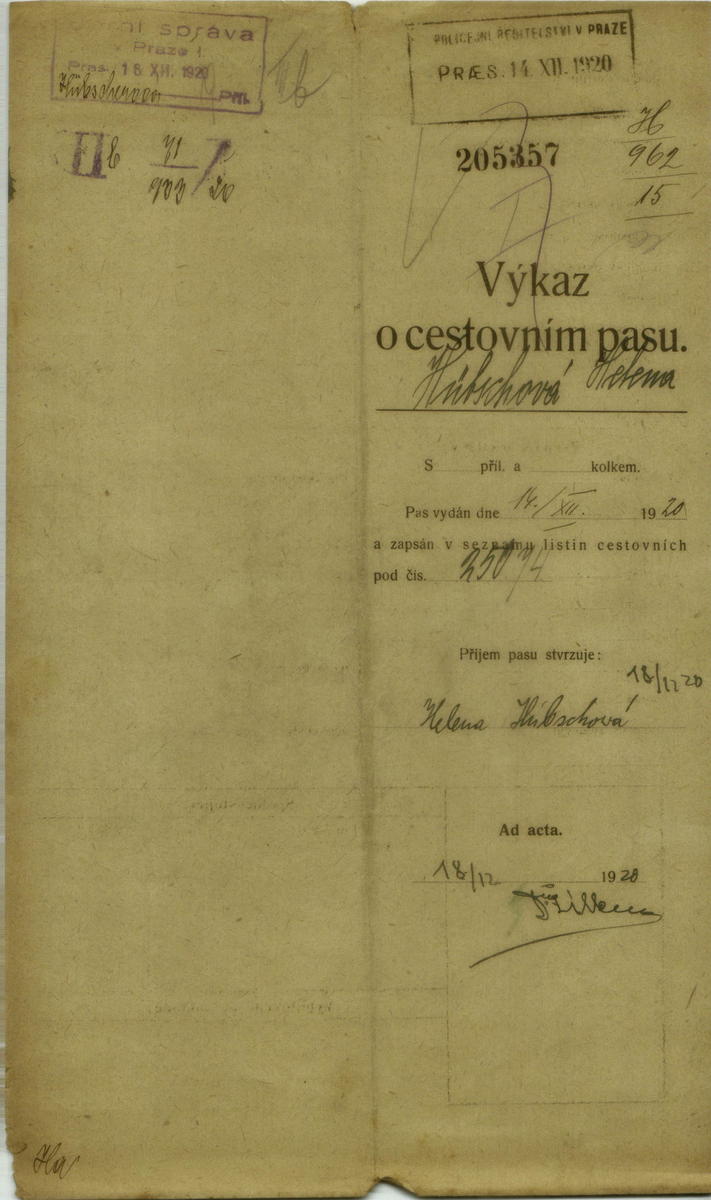 správa
v Praze I.
Præs. 16 XII. 1920
Přil.
II b 71
903 / 20
POLICEJNÍ ŘEDITELSTVÍ V PRAZE
PRÆS. 14. XII. 1920
205357
H
962
15
Výkaz
o cestovním pasu.
Hübschová Helena
S příl. a kolkem.
Pas vydán dne 14./XII. 1920
a zapsán v seznamu listin cestovních
pod čís. 25074
Příjem pasu stvrzuje:
18/12 20
Helena Hübschová
Ad acta.
18/12 1920
Ha